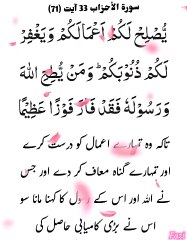 سورۃ الأحزاب 33 آیت (71)
يُّصْلِحْ لَكُمْ اَعْمَالَكُمْ وَيَغْفِرْ
لَكُمْ ذُنُوْبَكُمْ ۭ وَمَنْ يُّطِعِ اللّٰهَ
وَرَسُوْلَهٗ فَقَدْ فَازَ فَوْزًا عَظِيْمًا
تاکہ وہ تمہارے اعمال کو درست کردے
اور تمہارے گناہ معاف کر دے اور جس
نے اللہ اور اس کے رسول کا کہنا مانا سو
اس نے بڑی کامیابی حاصل کی